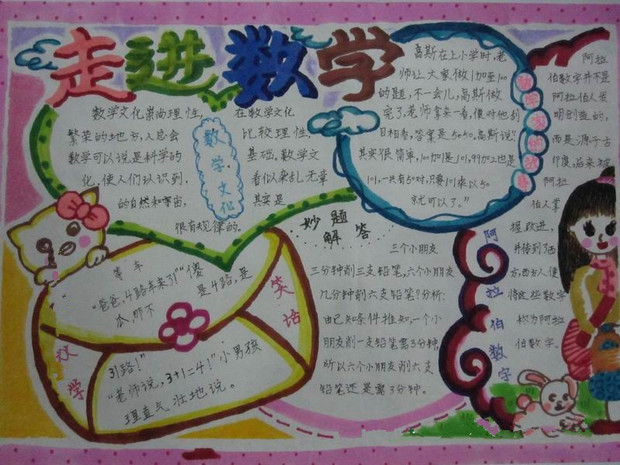 走进数学
数学文化崇尚理性,
繁荣的地方,人总会
数学可以说是科学的
化,使人们认识到,
的自然和宇宙,
很有规律的。
在数学文化
比较理性,
基础。数学文
看似杂乱无章
其实是
数学文化
高斯在上小学时,老
师让大家做1加至100
的题,不一会儿,高斯做
完了,老师拿来一看,便对他刮
目相看,答案是5050,高斯说:“
其实很简单,100加1是101,99加2也是
101,一共有50对,只要101乘以50
就可以了。”
数学家的故事
阿拉
伯数字并不是
阿拉伯人发
明创造的,
而是源于古
印度,后来被
阿拉
伯人掌
握、改进,
并传到了西
方,西方人便
将这些数字
称为阿拉
伯数字。
阿拉伯数字
妙题
解答
三个小朋友
三分钟削三支铅笔,六个小朋友
几分钟削六支铅笔?分析:
由已知条件推知,一个小
朋友削一支铅笔需3分钟,
所以六个小朋友削六支
铅笔还是需3分钟。
等车
“爸爸,4路车来了!”“傻
瓜,那不
是4路,是
31路!”
“老师说,3+1=4!”小男孩
理直气
壮地说。
数学
笑话